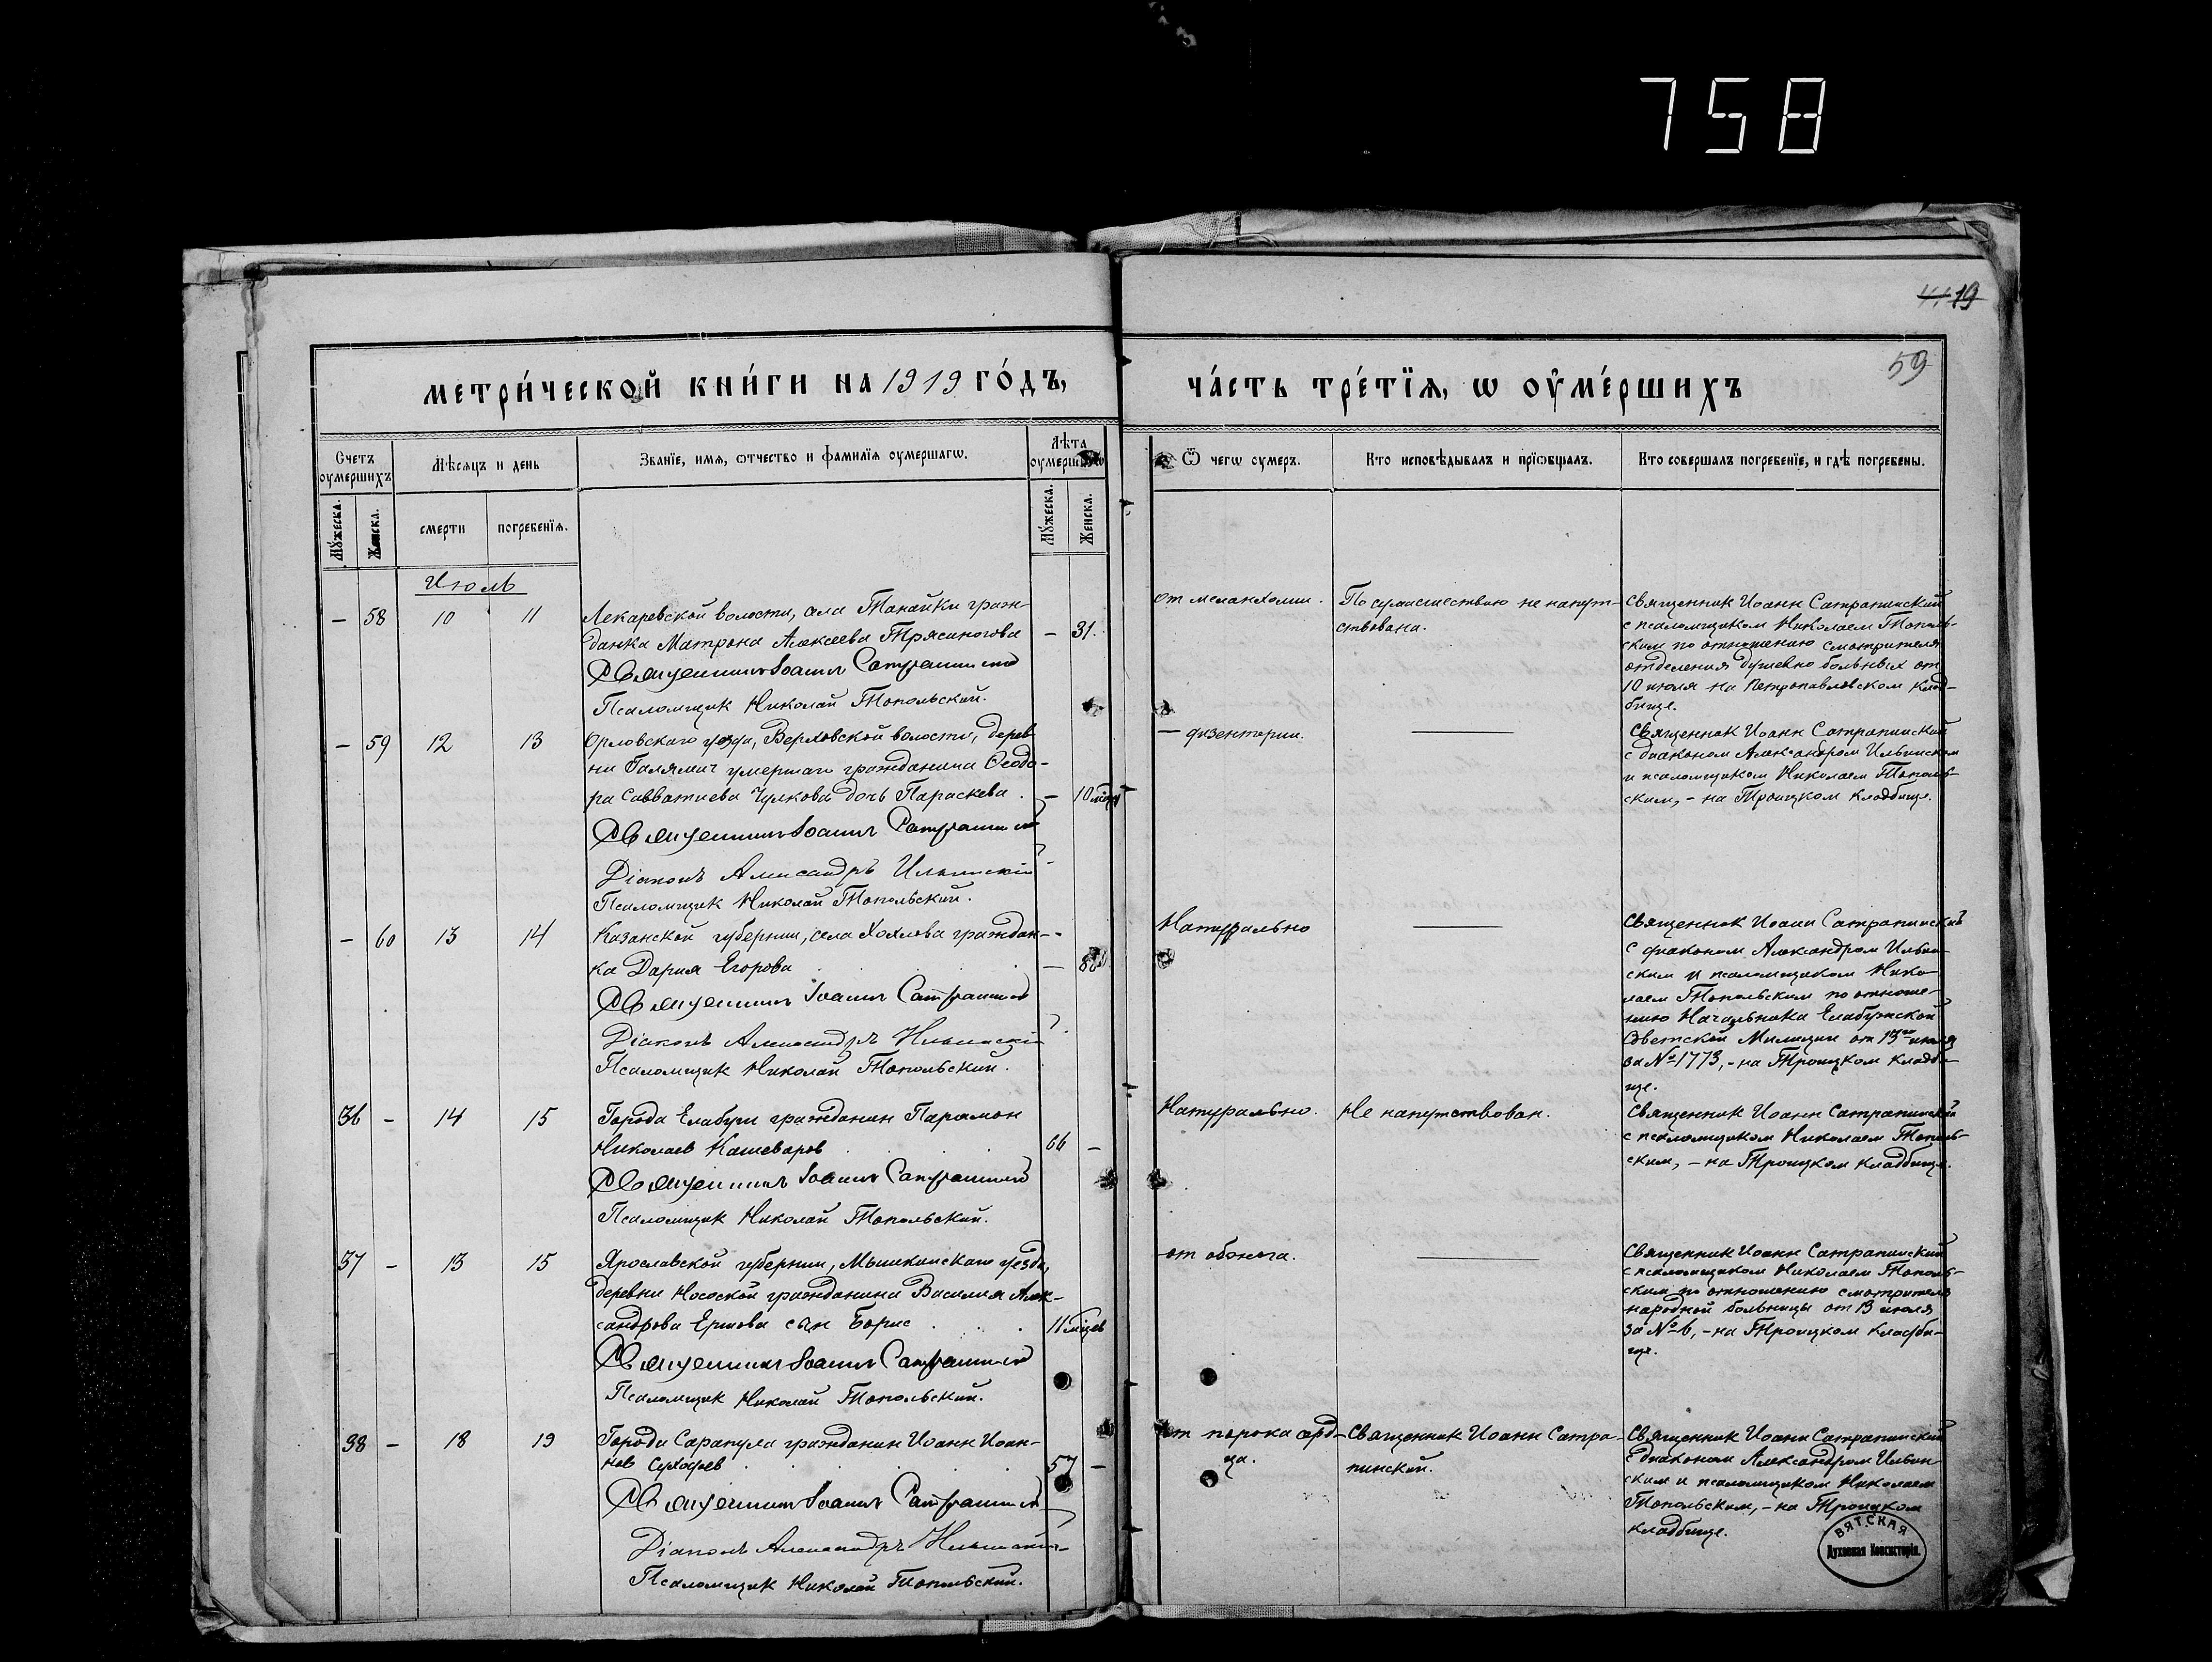 758
19
59
метри́ческой кни́ги на 1919 го́дъ,
ча́сть тре́тїѧ, ѡ оу҆ме́ршихъ
Счетъ оумершихъ
Мѣсѧцъ и день
Званїе, имѧ, ѿчество и фамилїѧ оумершагѡ.
Лѣта
Ѿ чегѡ оумеръ.
Кто исповѣдывалъ и прїѡбщалъ.
Кто совершалъ погребенїе, и гдѣ погребены.
Мужеска.
Женска.
смерти
погребенїѧ.
Мужеска.
Женска.
Июль
— 58 10 11
Лекаревской волости, села Танайки граж-
данка Матрона Алексеева Трясиногова — 31.
Священникъ Іоаннъ Сатрапинскій
Псаломщик Николай Топольский.
от меланхолии.
По сумасшествию не напут-
ствована.
Священник Иоанн Сатрапинский
с псаломщиком Николаем Тополь-
ским по отношению смотрителя
отделения душевно больных от
10 июля на Петропавловском клад-
бище.
— 59 12 13
Орловского уезда, Верховской волости, дерев
ни умершаго гражданина Феодо-
ра Савватиева Чулкова дочь Параскева. — 10 мцев
Священникъ Іоаннъ Сатрапинскій
Діаконъ Александръ Ильинскій
Псаломщик Николай Топольский.
— дизентерии.
Священник Иоанн Сатрапинский
с диаконом Александром Ильинским
и псаломщиком Николаем Тополь-
ским, – на Троицком кладбище.
— 60 13 14
Казанской губернии, села Хохлова граждан-
ка Дария Егорова —
Священникъ Іоаннъ Сатрапинскій
Діаконъ Александръ Ильинскій
Псаломщик Николай Топольский.
Натурально
Священник Иоанн Сатрапинский
с диаконом Александром Ильин-
ским и псаломщиком Нико-
лаем Топольским по отноше-
нию Начальника Елабужской
Советской Милиции от 13го июля
за № 1773, – на Троицком кладби-
ще.
36 – 14 15
Города Елабуги гражданин Парамон
Николаев Кашеваров 66 –
Священникъ Іоаннъ Сатрапинскій
Псаломщик Николай Топольский.
Натурально.
Не напутствован.
Священник Иоанн Сатрапинский
с псаломщиком Николаем Тополь-
ским, – на Троицком кладбище.
37 – 13 15
Ярославской губернии, Мышкинскаго уезда,
деревни Носоской гражданина Василия Алек-
сандрова Ершова сын Борис 11 мцев
Священникъ Іоаннъ Сатрапинскій
Псаломщик Николай Топольский.
от обжога.
Священник Иоанн Сатрапинский
с псаломщиком Николаем Тополь-
ским по отношению смотрителя
народной больницы от 13 июля
за № 6, – на Троицком кладби-
ще.
38 – 18 19
Города Сарапула гражданин Иоанн Иоан-
нов Сухарев 57 –
Священникъ Іоаннъ Сатрапинскій
Діаконъ Александръ Ильинскій
Псаломщик Николай Топольский.
от порока серд-
ца.
Священник Иоанн Сатра-
пинский.
Священник Иоанн Сатрапинский
с диаконом Александром Ильин-
ским и псаломщиком Николаем
Топольским, – на Троицком
кладбище.
ВЯТСКАЯ
Духовная Консисторія.